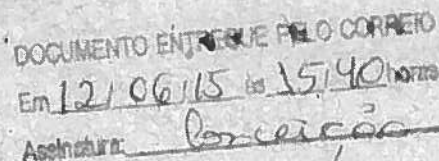 DOCUMENTO ENTREGUE PELO CORREIO
Em 12/06/15 às 15:40 horas
Assinatura: Conceição